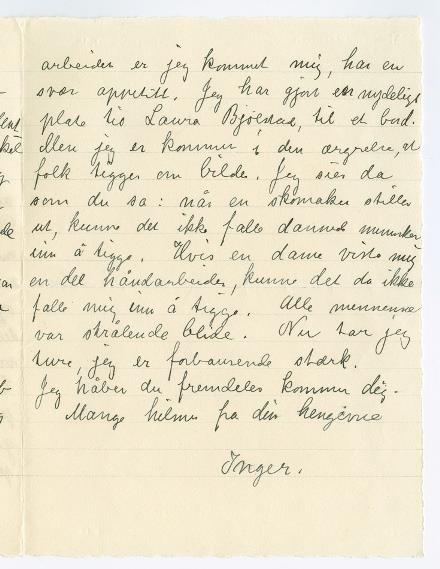 arbeider er jeg kommet mig, har en
svær appetitt. Jeg har gjort en nydeligt
plate til Laura Bjølstad, til et bord.
Men jeg er kommen i den ærgrelse, at
folk tigger om bilder. Jeg sier da
som du sa: når en skomaker stiller
ut, kunne det ikke falle dannede mennesker
inn å tigge. Hvis en dame viste mig
en del håndarbeider, kunne det da ikke
falle mig inn å tigge. Alle menneskene
var strålende blide. Nu tar jeg
ture, jeg er forbausende stærk.
Jeg håber du fremdeles kommer dig.
Mange hilsner fra din hengivne
Inger.